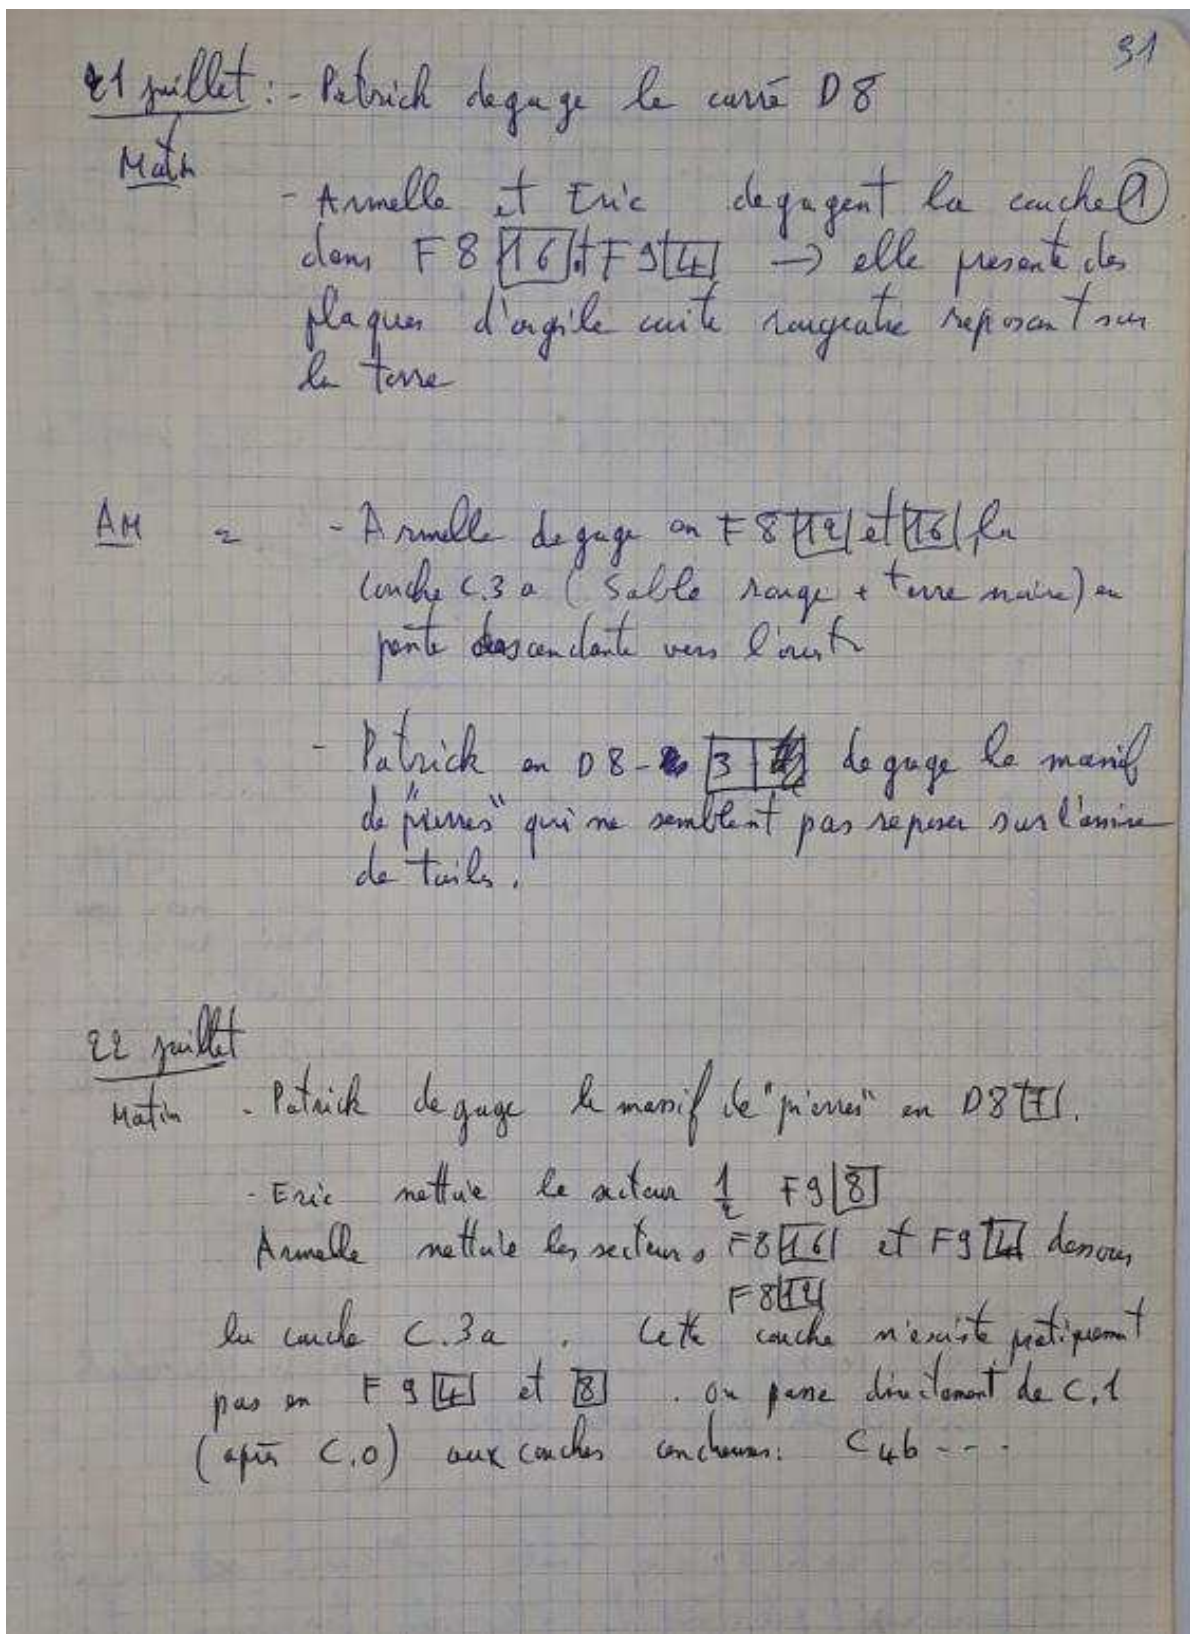 31
21 juillet : - Patrick degage le carré D8
Matin
- Armelle et Eric degagent la couche 1
dans F8 16 et F9 4 → elle presente des
plaques d'argile cuite rougeatre reposant sur
la terre
AM = - Armelle degage en F8 12 et 16, la
couche C.3a (Sable rouge + terre noire) en
pente descendante vers l'ouest
- Patrick en D8 - 3 degage le massif
de "pierres" qui ne semblent pas reposer sur l'assise
de tuiles.
22 juillet
Matin - Patrick degage le massif de "pierres" en D8 7.
- Eric nettoie le secteur 1/2 F9 8
Armelle nettoie les secteurs F8 16 et F9 4 dessous
F8 12
la couche C.3a. Cette couche n'existe pratiquement
pas en F9 4 et 8. on passe directement de C.1
(après C.0) aux couches : C4b - - -